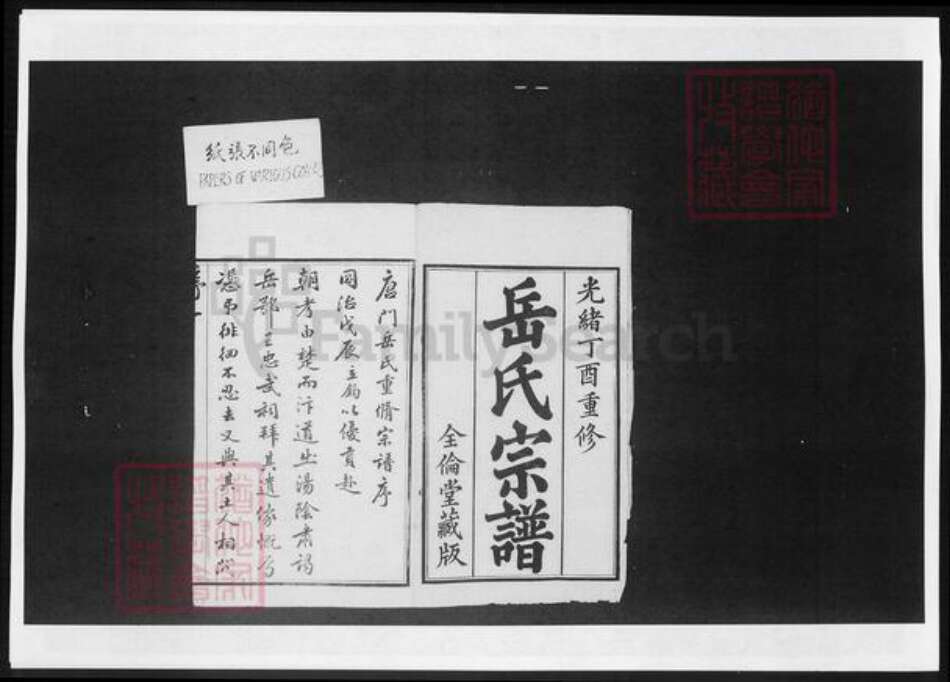 紙張不同色
PAPERS OF VARIOUS COLORS
光緒丁酉重修
岳氏宗譜
全倫堂藏版
唐門岳氏重脩宗譜序
同治戊辰立鈞以優貢赴
朝考由楚而汴道出湯陰肅謁
岳鄂王忠武祠拜其遺像慨焉
憑弔徘徊不忍去又與其土人相
FamilySearch